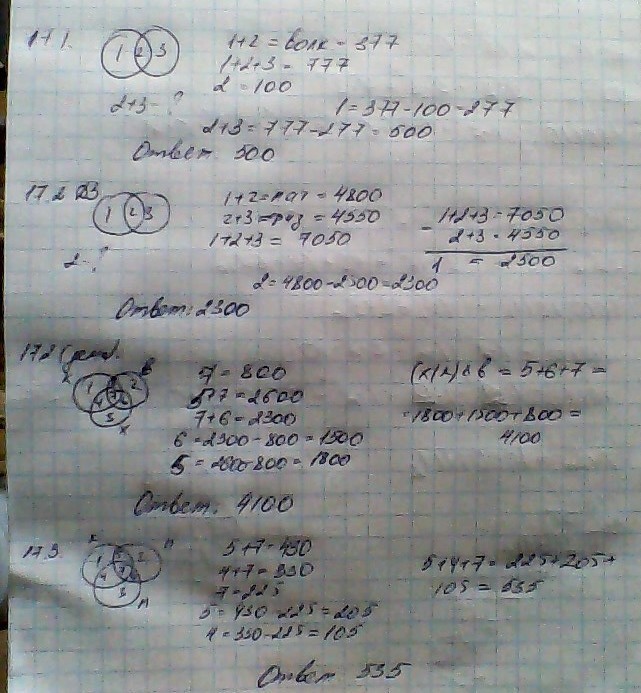 17 1.
1 2 3
1+2 = волк = 377
1+2+3 = 777
2 = 100
2+3 - ?
1 = 377-100 = 277
2+3 = 777-277 = 500
Ответ 500
17.2
1 2 3
1+2 = мат = 4800
2+3 = физ = 4550
1+2+3 = 7050
2 - ?
- 1+2+3 = 7050
2+3 = 4550
1 = 2500
2 = 4800-2500 = 2300
Ответ: 2300
1 2 3 4 5 6 7
7 = 800
5+7 = 2600
7+6 = 2300
6 = 2300-800 = 1500
5 = 2600-800 = 1800
= 5+6+7 =
= 1800+1500+800 =
4100
Ответ. 4100
17.3
5+7 = 430
4+7 = 330
7 = 225
5 = 430-225 = 205
4 = 330-225 = 105
5+4+7 = 225+205+
105 = 535
Ответ 535